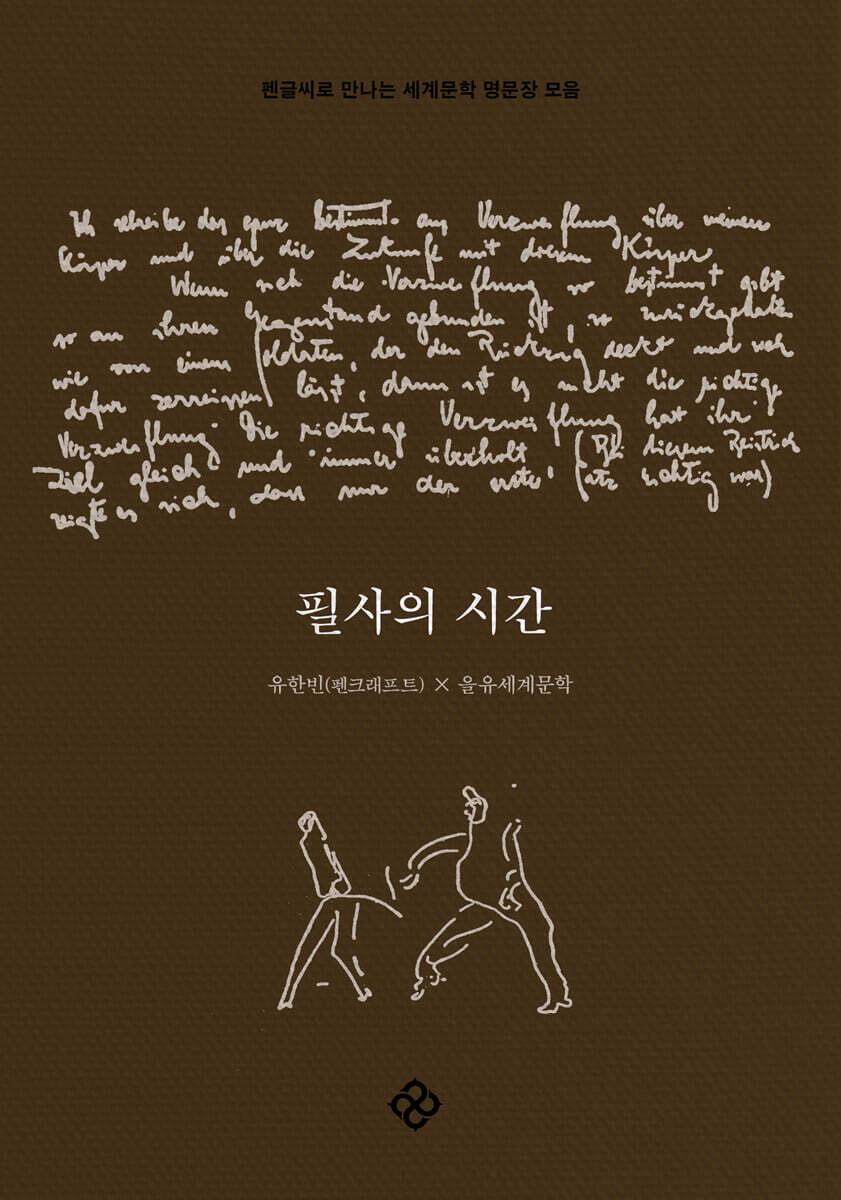 펜글씨로 만나는 세계문학 명문장 모음
Ich schreibe das ganz bestimmt aus Verzweiflung über meinen
Körper und über die Zukunft mit diesem Körper
Wenn sich die Verzweiflung so bestimmt gibt
so an ihren Gegenstand gebunden ist, so zurückgehalten
wie von einem Soldaten, der den Rückzug deckt und sich
dafür zerreissen lässt, dann ist es nicht die richtige
Verzweiflung. Die richtige Verzweiflung hat ihr
Ziel gleich und immer überholt, (Bei diesem Beistrich
zeigte es sich, dass nur der erste Satz richtig war)
필사의 시간
유한빈(펜크래프트) × 을유세계문학